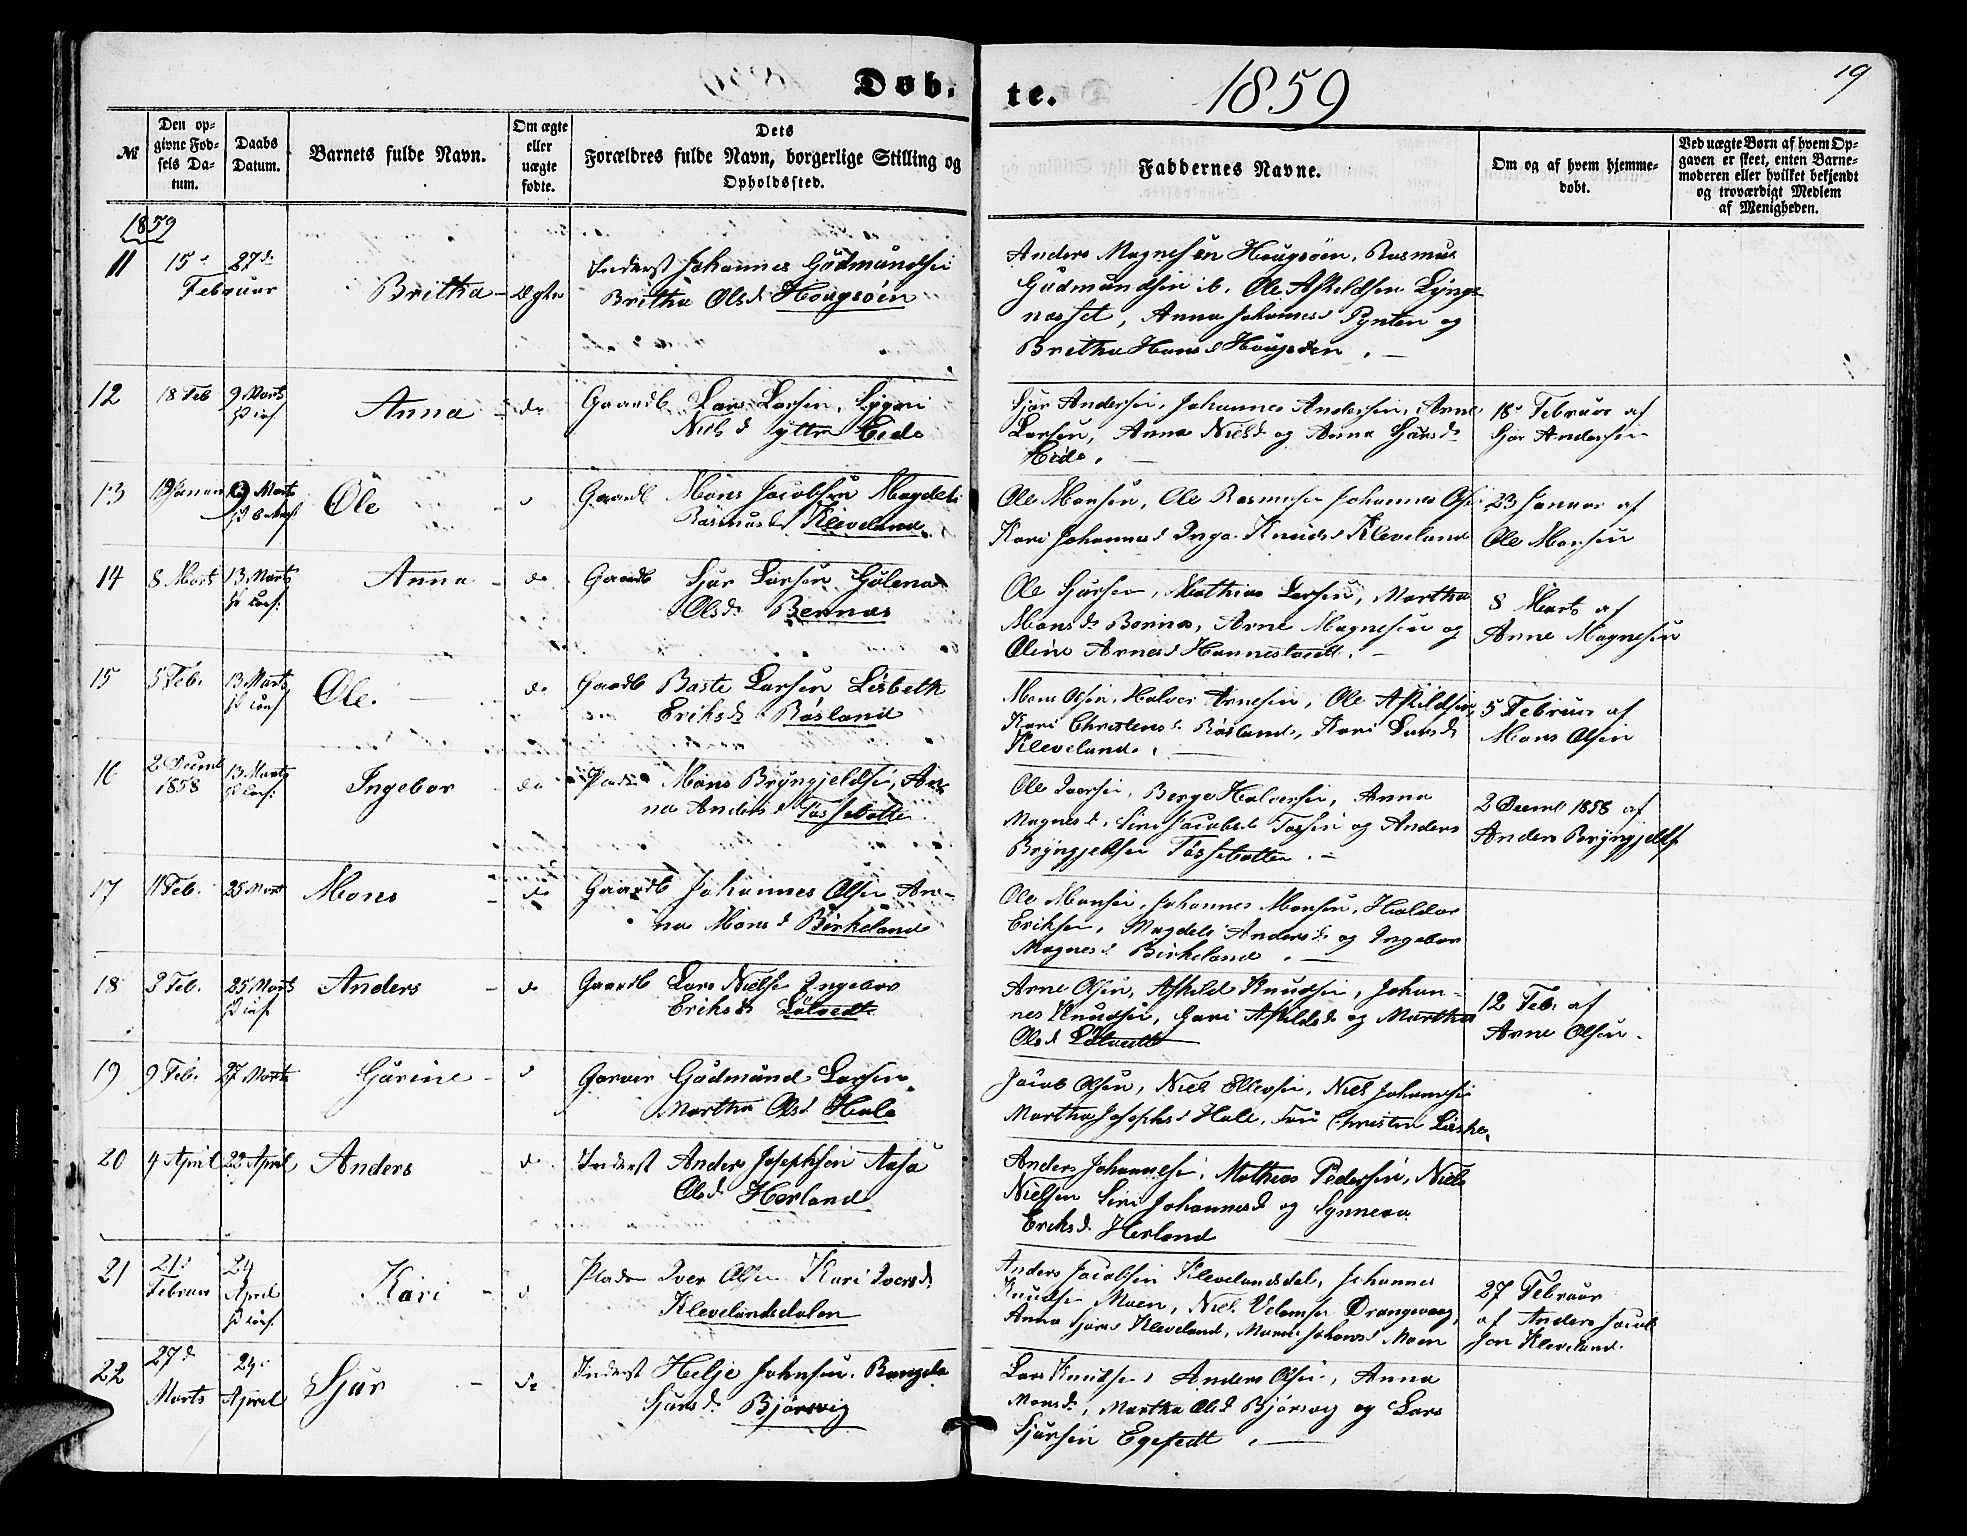 Døb.
te.
1859
19
№
Den op-
givne Fød-
sels Da-
tum.
Daabs
Datum.
Barnets fulde Navn.
Om ægte
eller
uægte
fødte.
Dets
Forældres fulde Navn, borgerlige Stilling og
Opholdssted.
Faddernes Navne.
Om og af hvem hjemme-
døbt.
Ved uægte Børn af hvem Op-
gaven er skeet, enten Barne-
moderen eller hvilket bekjendt
og troværdigt Medlem
af Menigheden.
1859
11 15 27de
Februar
Britha Ægte
Inderst Johannes Gudmundsen
Britha Olsd Hougsøen
Anders Magnesen Hougsøen, Rasmus
Gudmundsen ib. Ole Askildsen Lyngs
næsset, Anna Johannesd Pynten og
Britha Hansd Hougsøen.
12 18 Feb 9 Marts
Anna do
Gaardb Lars Larsen, Sygni
Nielsd ytre Eide
Sjur Andersen, Johannes Andersen, Arne
Larsen, Anna Nielsd og Anna Sjursd
Eide.
18 Februar af
Sjur Andersen
13 19 Januar 9 Marts
Ole
Gaardb Mons Jacobsen Magdeli
Rasmusd Kleveland.
Ole Monsen, Ole Rasmusen Johannes Ols
Kari Johannesd Inga Knudsd Kleveland
23 Januar af
Ole Monsen
14 8 Marts 13 Marts
Anna do
Gaardb Sjur Larsen Gulena
Olsd Bernæs
Ole Sjursen, Mathias Larsen, Martha
Monsd Bernæs, Arne Magnesen og
Oline Arnesd Hannestvedt.
8 Marts af
Arne Magnesen
15 5 Feb. 13 Marts
Ole. do
Gaardb Baste Larsen Lisbeth
Eriksd Røsland
Mons Olsen, Halvor Arnesen, Ole Askildsen,
Kari Christensd Røsland, Kari Larsd
Kleveland.
5 Februar af
Mons Olsen
16 2 Decembr 13 Marts
1858
Ingebor do
Plads Mons Bryngjeldsen, An-
na Andersd Tøssebotten
Ole Iversen, Berge Halversen, Anna
Magnesd, Siri Jacobsd Tøssen og Anders
Bryngjeldsen Tøssebotten.
2 Decemb 1858 af
Anders Bryngjelds.
17 11 Feb. 25 Marts
Mons do
Gaardb Johannes Olsen An-
na Monsd Birkeland
Ole Monsen, Johannes Monsen, Haldor
Eriksen, Magdeli Andersd og Ingebor
Magnesd Birkeland.
18 3 Feb. 25 Marts
Anders do
Gaardb Lars Nielsen Ingebor
Eriksd Lølvedt
Arne Olsen, Askild Knudsen, Johan-
nes Knudsen, Guri Askildsd og Martha
Olsd Lølvedt
12 Feb. af
Arne Olsen.
19 9 Feb. 27 Marts
Gurine
Garver Gudmund Larsen
Martha Olsd Hole
Jacob Olsen, Niels Ellevsen, Niels Johannesen
Martha Josephsd Hole,
20 4 April 24 April
Anders
Inderst Anders Josephsen Aasa
Olsd Herland
Anders Johannesen, Mathias Pedersen, Niels
Nielsen Siri Johannesd og Synneva
Eriksd Herland
21 21 24
Februar April
Kari
Plads Iver Olsen Kari Iversd
Klevelandsdalen
Anders Jacobsen Klevelandsdal, Johannes
Knudsen Moen, Niels Villumsen Drangevaag,
Anna Sjursd Kleveland, Johansd Moen
27 Februar
af Anders Jacob
sen Kleveland.
22 27de 24
Marts April
Sjur do
Inderst Helje Johnsen. Brægda
Sjursd Bjørsvig
Lars Knudsen, Anders Olsen, Anna
Monsd, Martha Olsd Bjørsvig og Lars
Sjursen Egetedt.